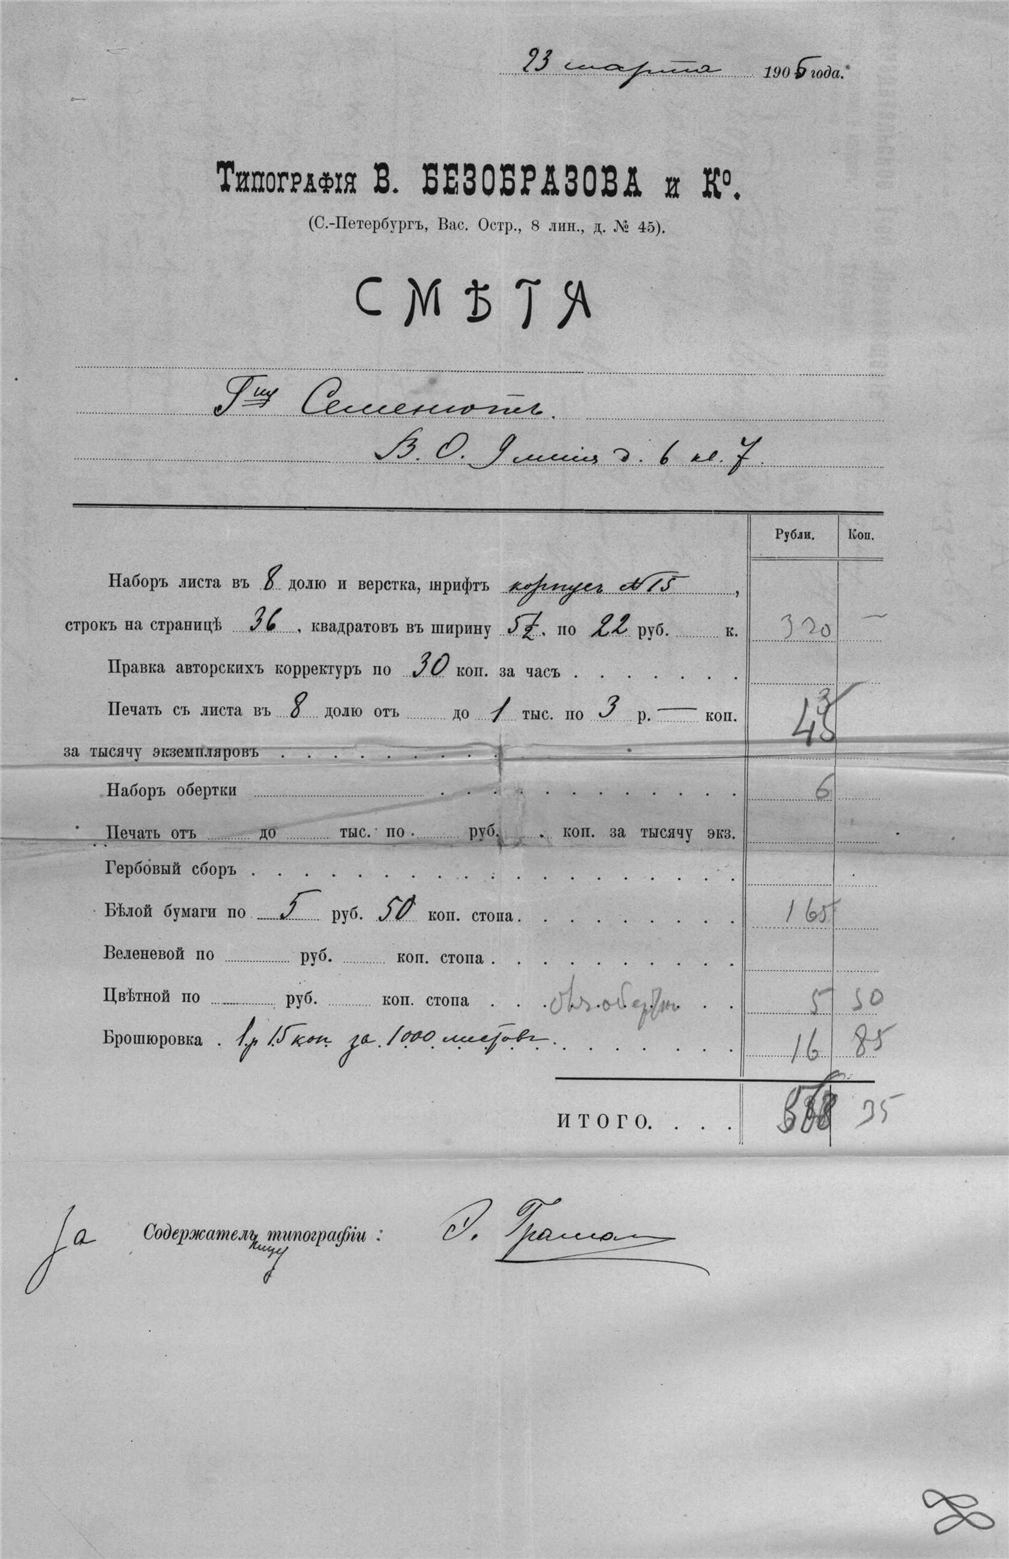 23 марта 1905 года.
Типографія В. БЕЗОБРАЗОВА и Ко.
(С.-Петербургъ, Вас. Остр., 8 лин., д. № 45).
СМѢТА
Семенютъ.
В. О. 9 линія д. 6 кв. 7.
Рубли. Коп.
Наборъ листа въ 8 долю и верстка, шрифтъ корпусъ №15,
строкъ на страницѣ 36, квадратовъ въ ширину 5½, по 22 руб. к. 320 —
Правка авторскихъ корректуръ по 30 коп. за часъ . . . . . . .
Печать съ листа въ 8 долю отъ до 1 тыс. по 3 р. — коп. 45
за тысячу экземпляровъ . . . . . . . . .
Наборъ обертки . . . . . . . . . . . . 6
Печать отъ до тыс. по руб. коп. за тысячу экз.
Гербовый сборъ . . . . . . . . . . . . . . . . . .
Бѣлой бумаги по 5 руб. 50 коп. стопа. . . . . . . . . 165
Веленевой по руб. коп. стопа . . . . . . . . . .
Цвѣтной по руб. коп. стопа . . . . . . . 5 50
Брошюровка . 1 р 15 коп за 1000 листовъ . . . . . . . . 16 85
ИТОГО. . . . 558 35
За Содержательницу типографіи :